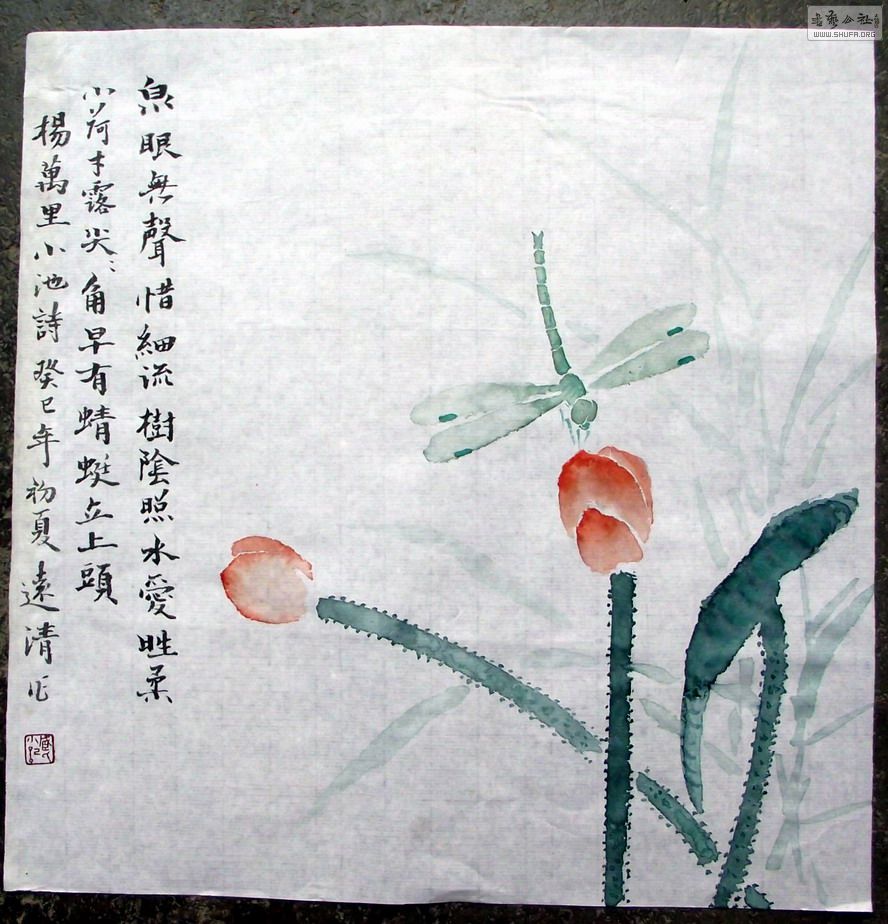 泉眼無聲惜細流樹陰照水愛晴柔
小荷才露尖ミ角早有蜻蜓立上頭
楊萬里小池詩癸巳年初夏遠清作
WWW.SHUFA.ORG